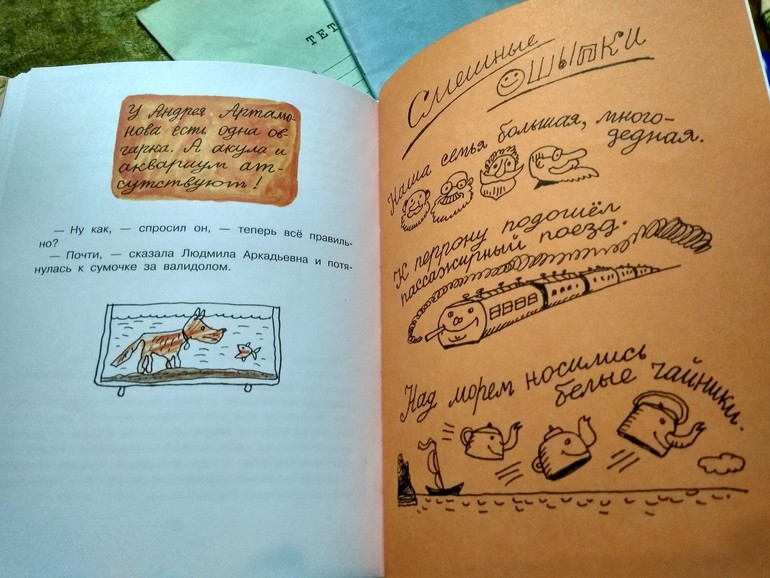 ТЕТ
У Андрея Артамо-
нова есть одна ов-
чарка. А акула и
аквариум от-
сутствуют!
— Ну как, — спросил он, — теперь всё правиль-
но?
— Почти, — сказала Людмила Аркадьевна и потя-
нулась к сумочке за валидолом.
Смешные
ОШЫПКИ
Наша семья большая, много-
дедная.
К перрону подошёл
пассажырный поезд.
Над морем носились
белые чайники.